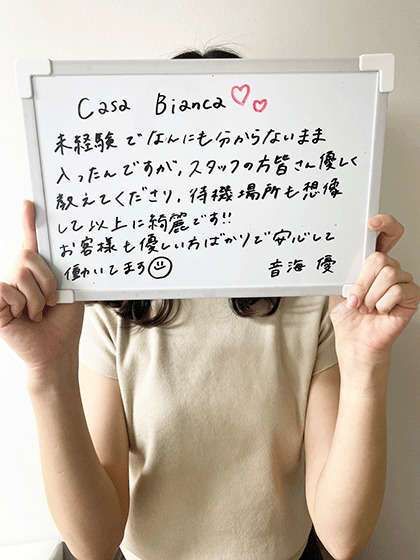 Casa Bianca
未経験でなんにも分からないまま
入ったんですが、スタッフの方皆さん優しく
教えてくださり、待機場所も想像
して以上に綺麗です!!
お客様も優しい方ばかりで安心して
働いてます
音海 優